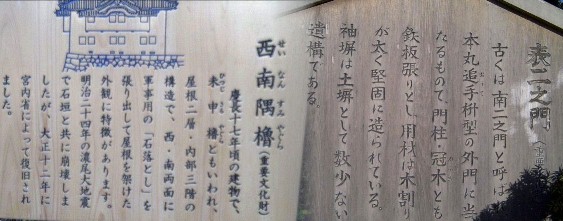 表二之門
古くは南二之門と呼ば
本丸追手枡型の外門に当
たるもので、門柱・冠木とも
鉄板張りとし、用材は木割り
が太く堅固に造られている。
袖塀は土塀として数少ない
遺構である。
せいなんすみやぐら
西南隅櫓(重要文化財)
慶長十七年頃の建物で、
未申櫓ともいわれ、
屋根二層・内部三階の
構造で、西・南両面に
軍事用の「石落とし」を
張り出して屋根を架けた
外観に特徴があります。
明治二十四年の濃尾大地震
で石垣と共に崩壊しま
したが、大正十二年に
宮内省によって復旧され
ました。